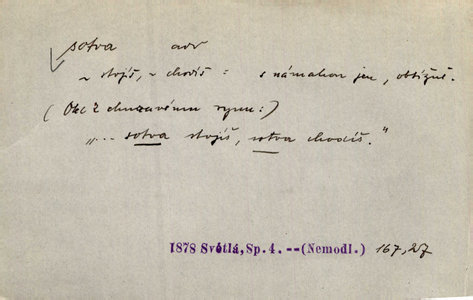 sotva adv
~ stojíš, ~ chodíš : s námahou jen, obtížně.
(Otec k synu:)
„... sotva stojíš, sotva chodíš."
1878 Světlá, Sp. 4. -- (Nemodl.) 167,27